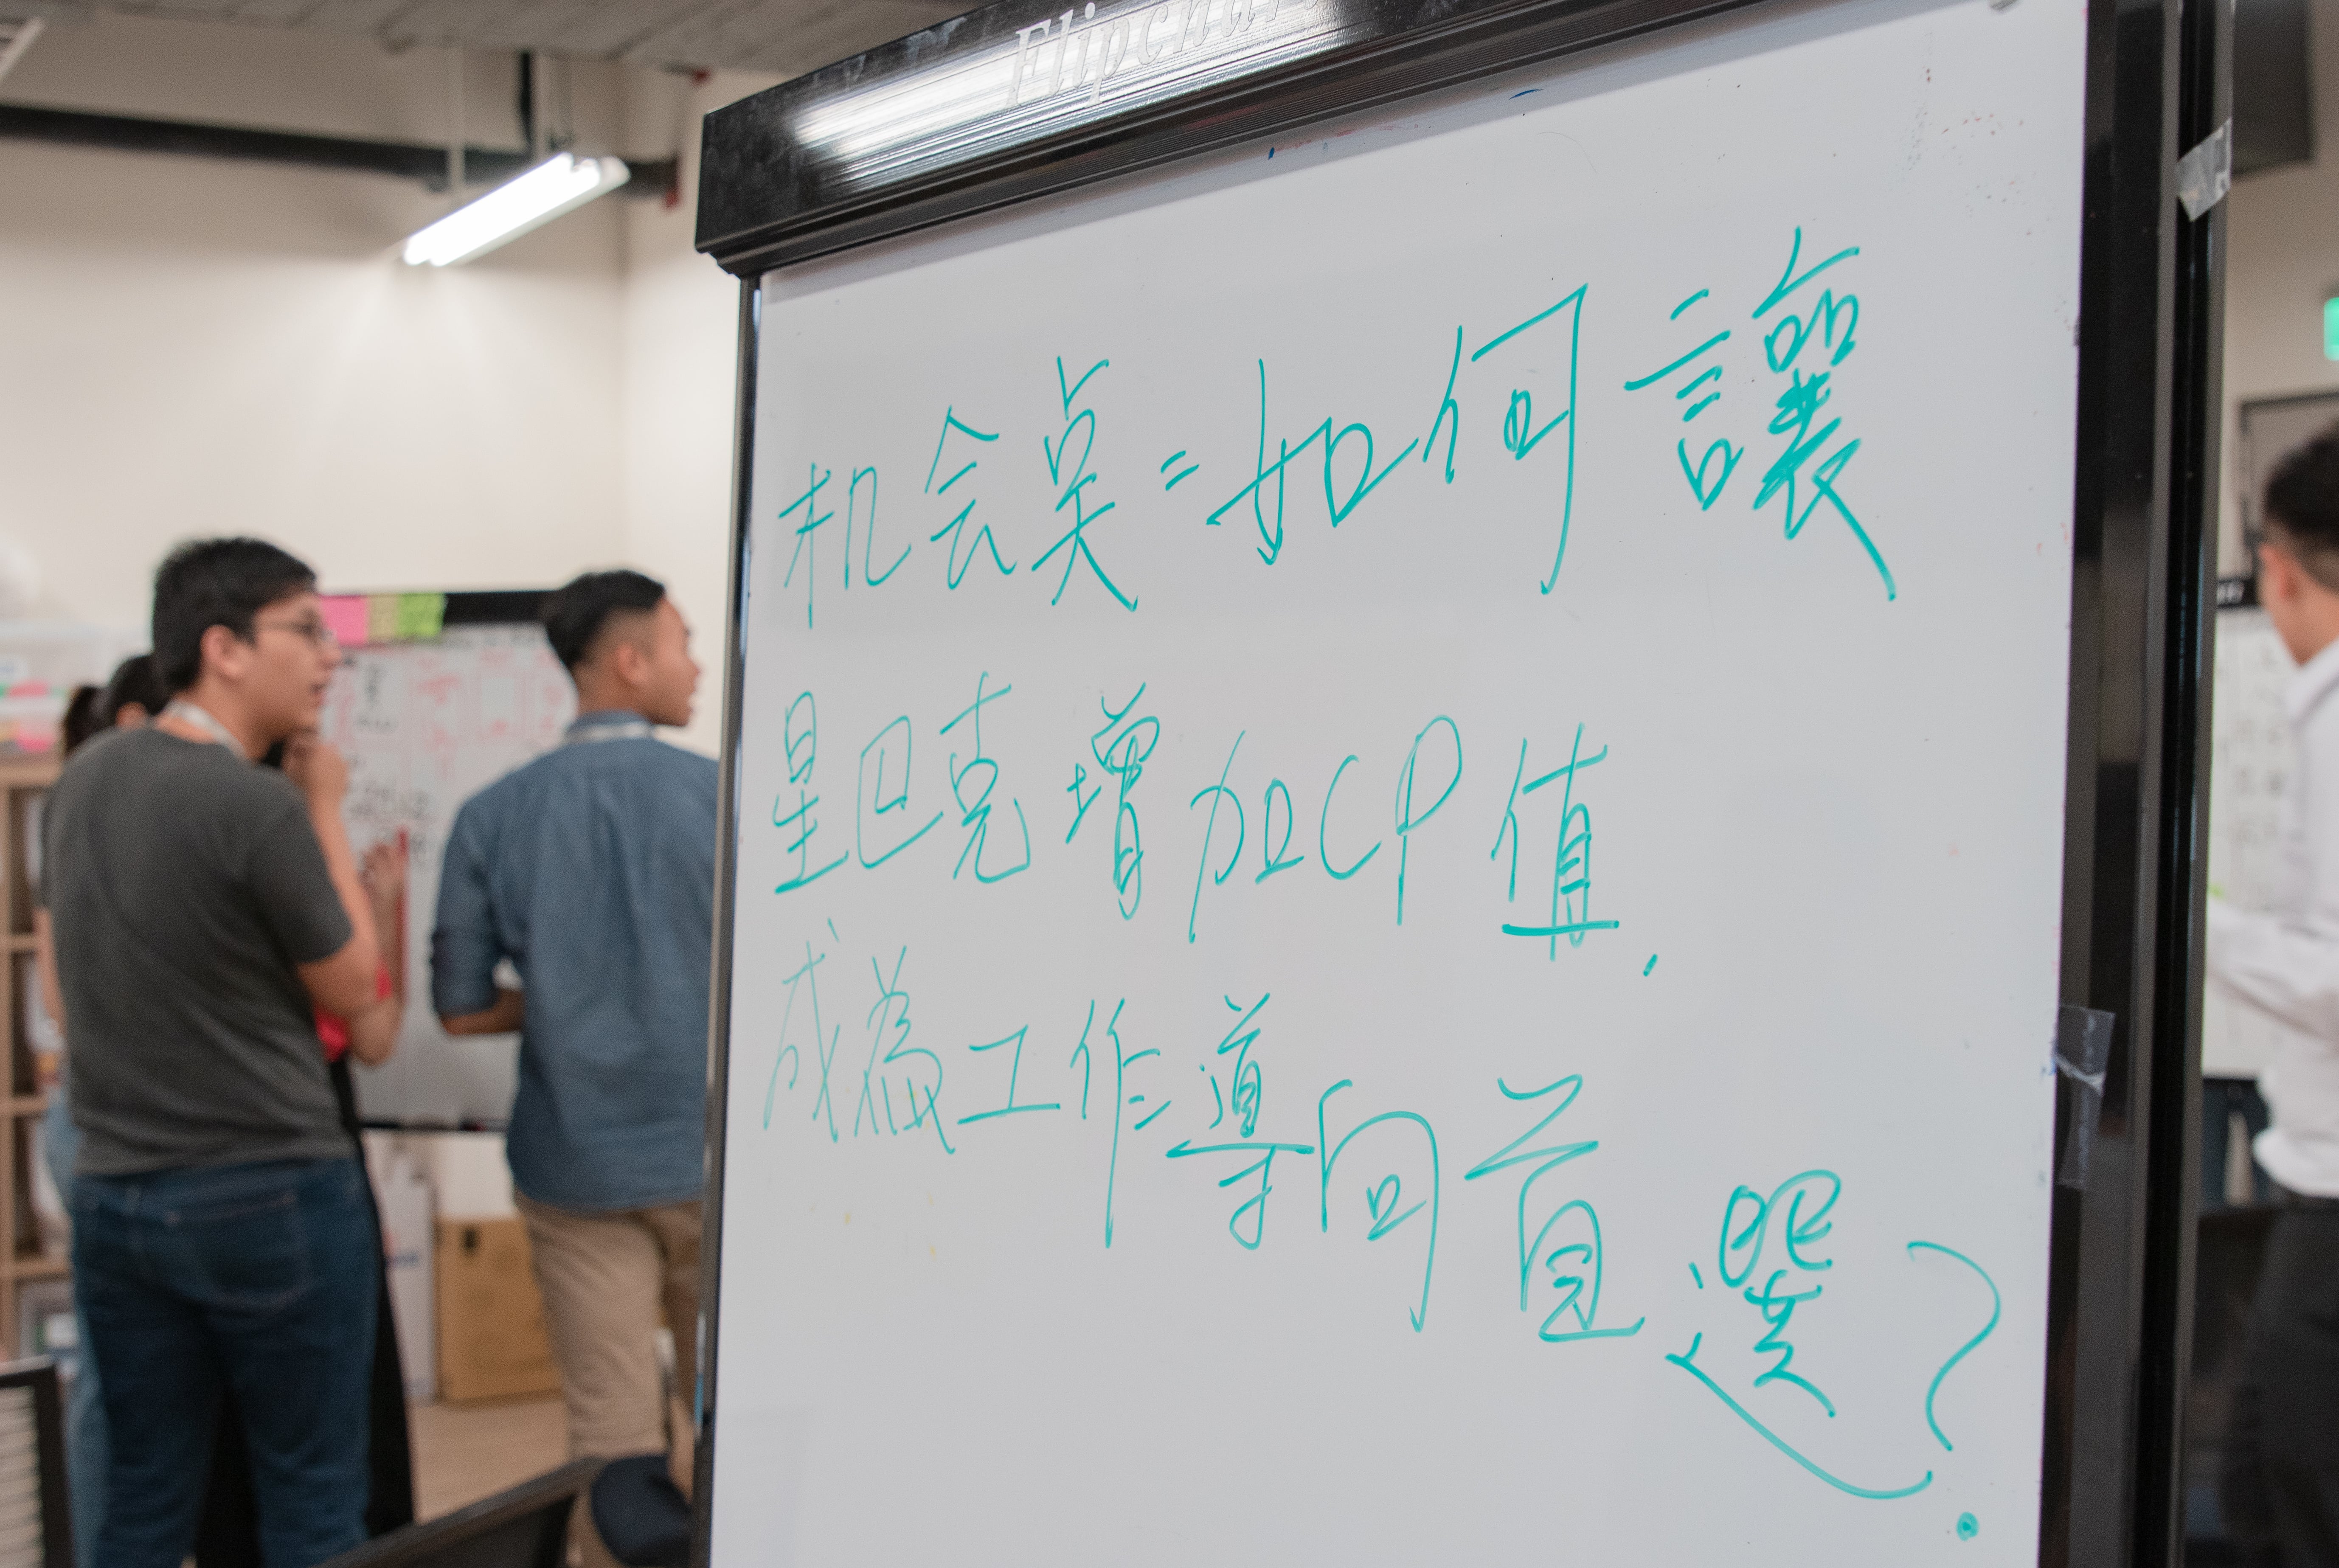 Flipchart
机会点=如何讓
星巴克增加CP值,
成為工作導向首選?